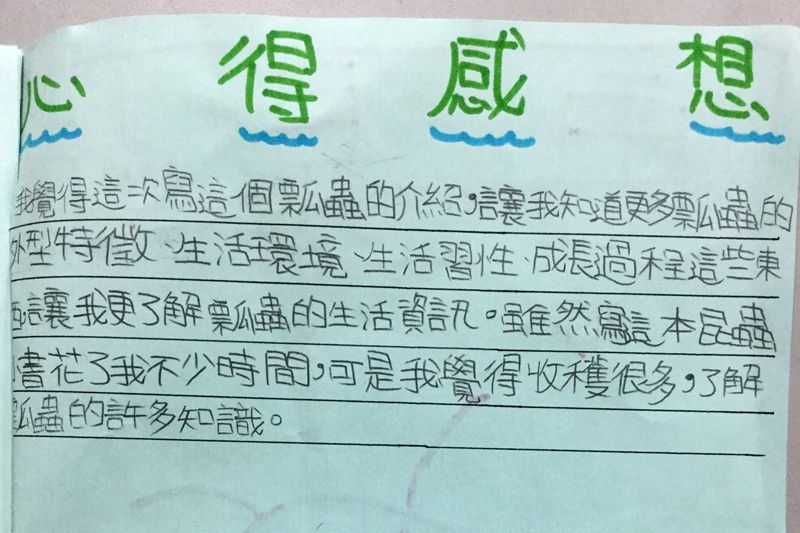 心得感想
我覺得這次寫這個瓢蟲的介紹，讓我知道更多瓢蟲的
外型特徵、生活環境、生活習性、成長過程這些東
西，讓我更了解瓢蟲的生活資訊。雖然寫這本昆蟲
小書花了我不少時間，可是我覺得收穫很多，了解
瓢蟲的許多知識。